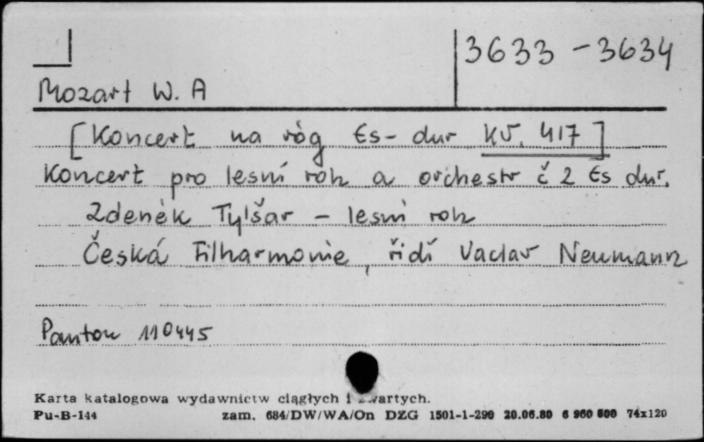 3633 - 3634
Mozart W. A
[Koncert na róg Es-dur KV. 417]
Koncert pro lesní roh a orchestr č 2 Es dur.
Zdeněk Tylšar - lesní roh
Česká Filharmonie, řidí Vaclav Neumann
Panton 110445
Karta katalogowa wydawnictw ciągłych i zwartych.
Pu-B-144 zam. 684/DW/WA/On DZG 1501-1-290 20.06.80 6 960 600 74x120